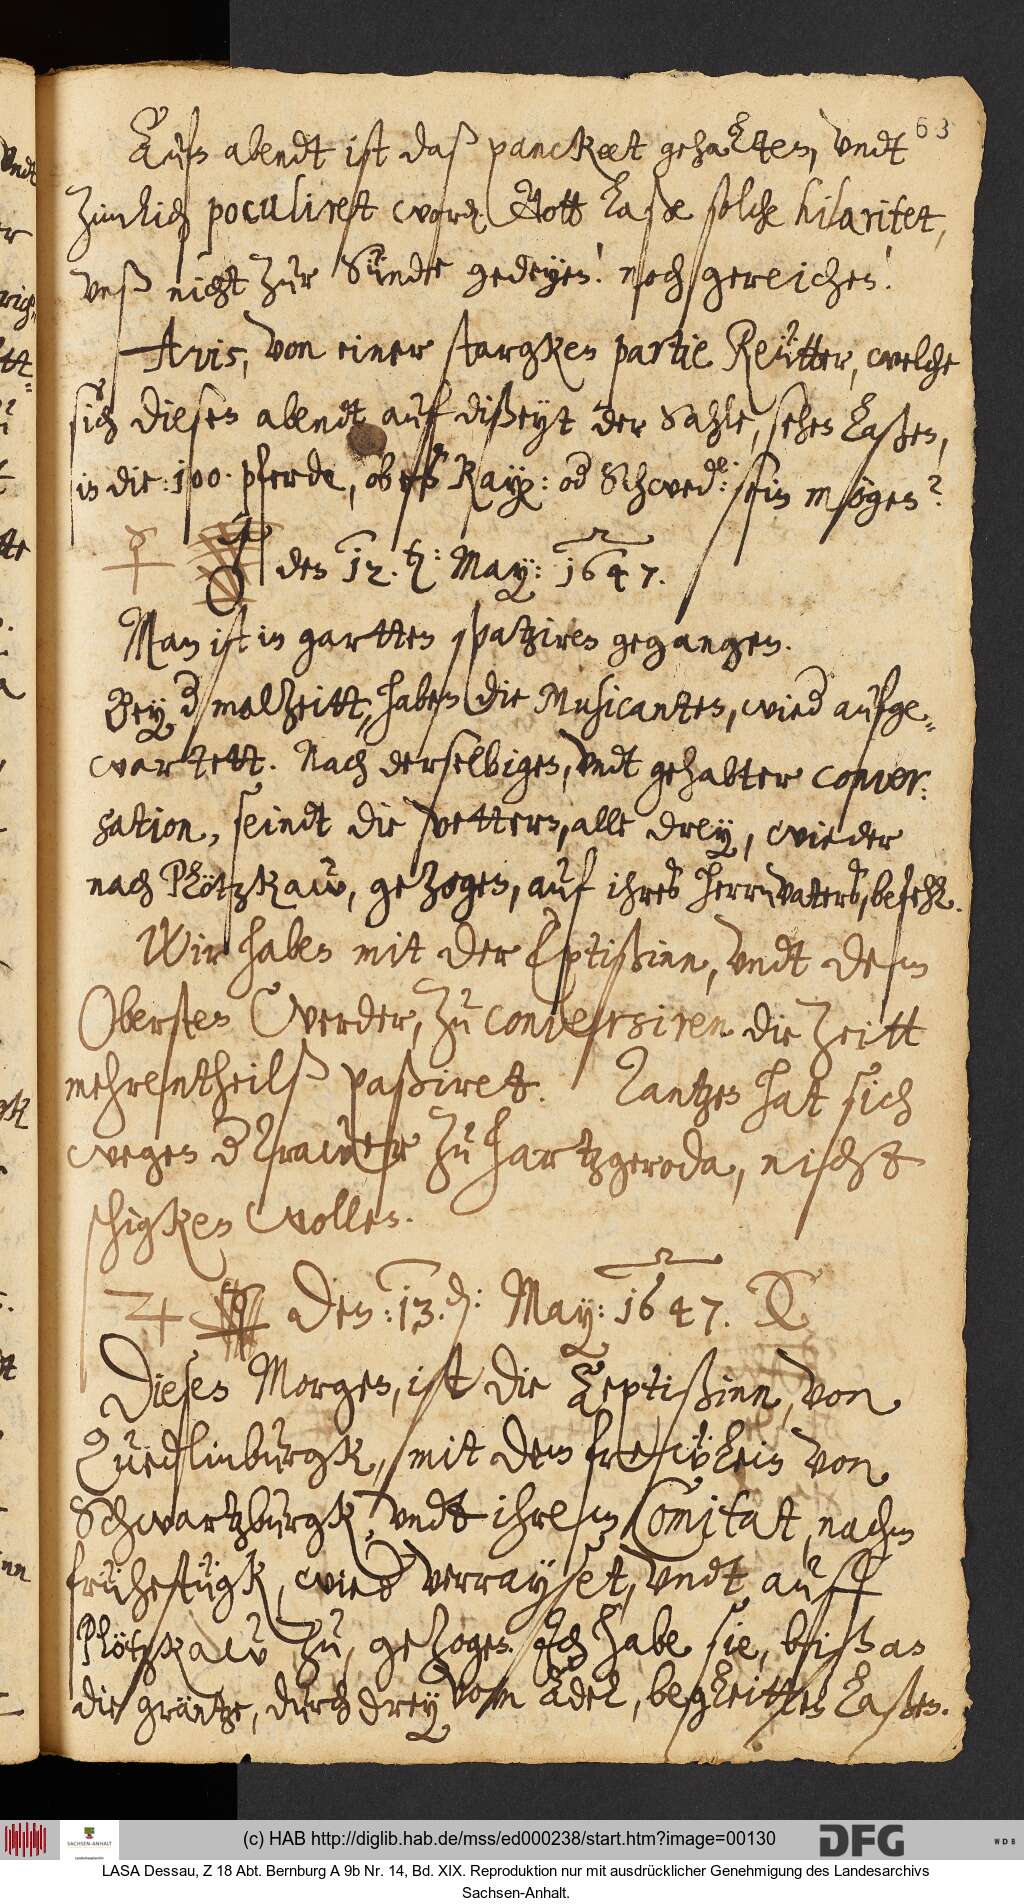 63
Aufn abendt ist daß panckeet gehaltten, vndt
zimlich poculiret word. Gott laße solche hilaritet,
vnß nicht zur Sünde gedeyen! noch gereichen!
Avis, von einer starcken partie Reütter, welche
sich diesen abendt auf dißeyt der Sahle, sehen laßen,
in die: 100. pferde, ob es Kayß: od Schwed: sein mögen?
☿ den 12. ten: May: 1647.
Man ist in gartten spatziren gegangen.
Bey d malzeitt, haben die Musicanten, wied aufge-
wartett. Nach derselbigen, vndt gehabter conver-
sation, seindt die vettern, alle drey, wieder
nach Plötzkaw, gezogen, auf ihres herrnvaters, befehl.
Wir haben mit der Eptißinn, vndt dem
Obersten Werder, zu conversiren die Zeitt
mehrentheilß paßiret. Tantzen hat sich
wegen d Trawer zu Hartzgeroda, nicht
schigken wollen.
♃ Den: 13. den: May: 1647.
Diesen Morgen, ist die Äeptißinn, von
Quedlinburgk, mit dem frewlein von
Schwartzburgk, vndt ihrem Comitat, nachm
frühestügk, wied verrayset, vndt auff
Plötzkaw zu, gezogen. Ich habe sie, biß an
die gräntze, durch drey vom Adel, begleitten laßen.
(c) HAB http://diglib.hab.de/mss/ed000238/start.htm?image=00130
SACHSEN-ANHALT
DFG
WDB
LASA Dessau, Z 18 Abt. Bernburg A 9b Nr. 14, Bd. XIX. Reproduktion nur mit ausdrücklicher Genehmigung des Landesarchivs
Sachsen-Anhalt.